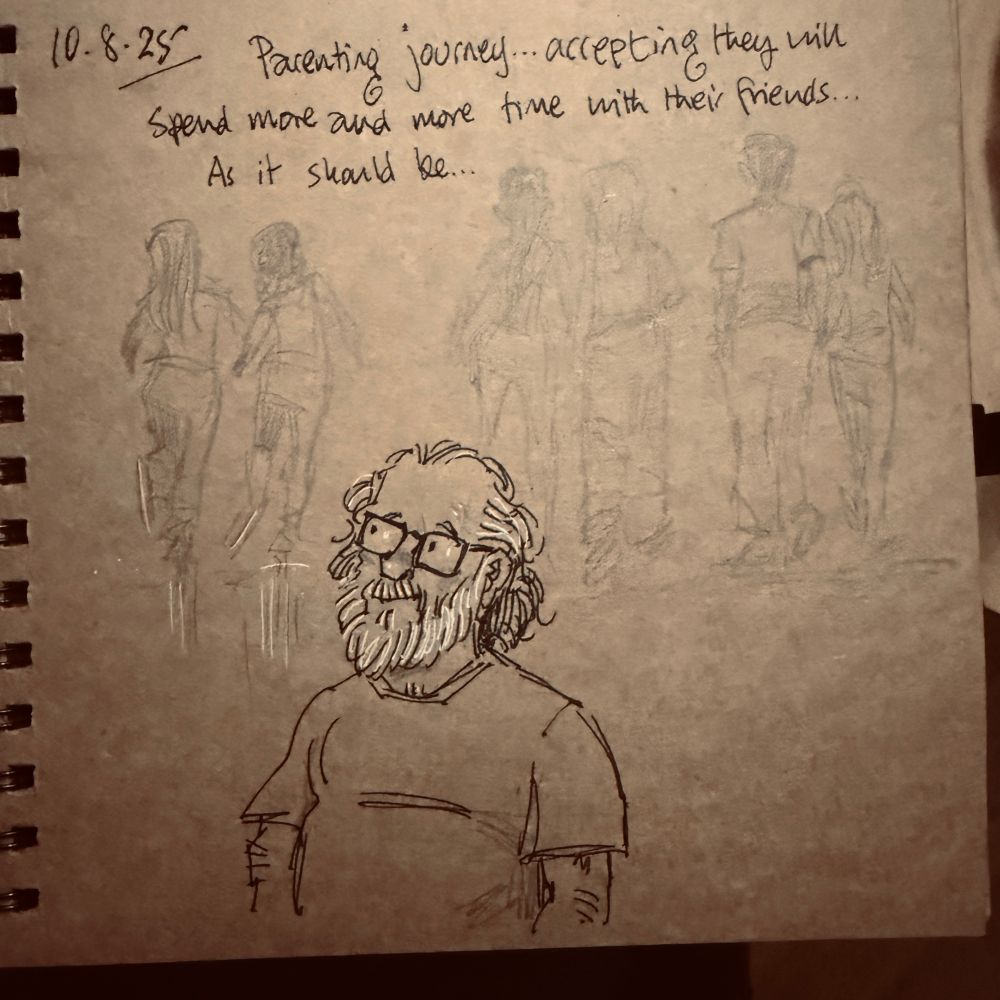 10.8.25
Parenting journey... accepting they will
spend more and more time with their friends...
As it should be...